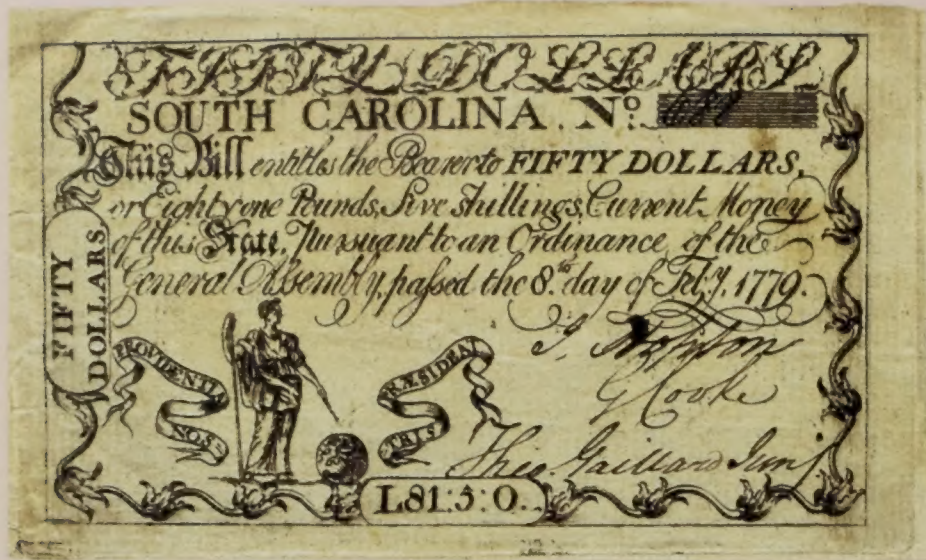 FIFTY DOLLARS
SOUTH CAROLINA. No:
This Bill entitles the Bearer to FIFTY DOLLARS,
or Eighty one Pounds, Five Shillings, Current Money
of this State, Pursuant to an Ordinance of the
General Assembly, passed the 8.th day of Feb.y, 1779.
FIFTY
DOLLARS
PROVIDENTI
NOS
PRÆSIDENT
TRIS
G Cooke
Theo. Gaillard Junr
L81:5:0.